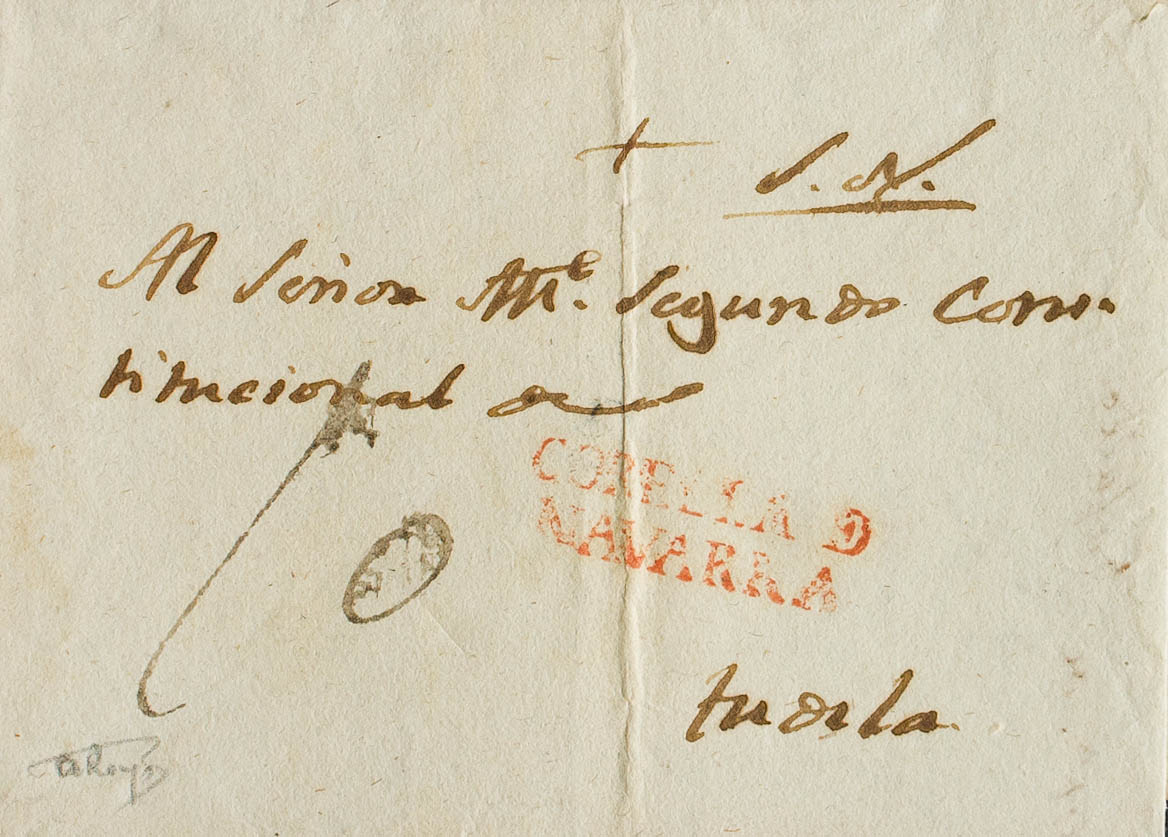 S. N.
Al Señor Alle. Segundo Cons-
titucional de
CORELLA D
NAVARRA
tudela